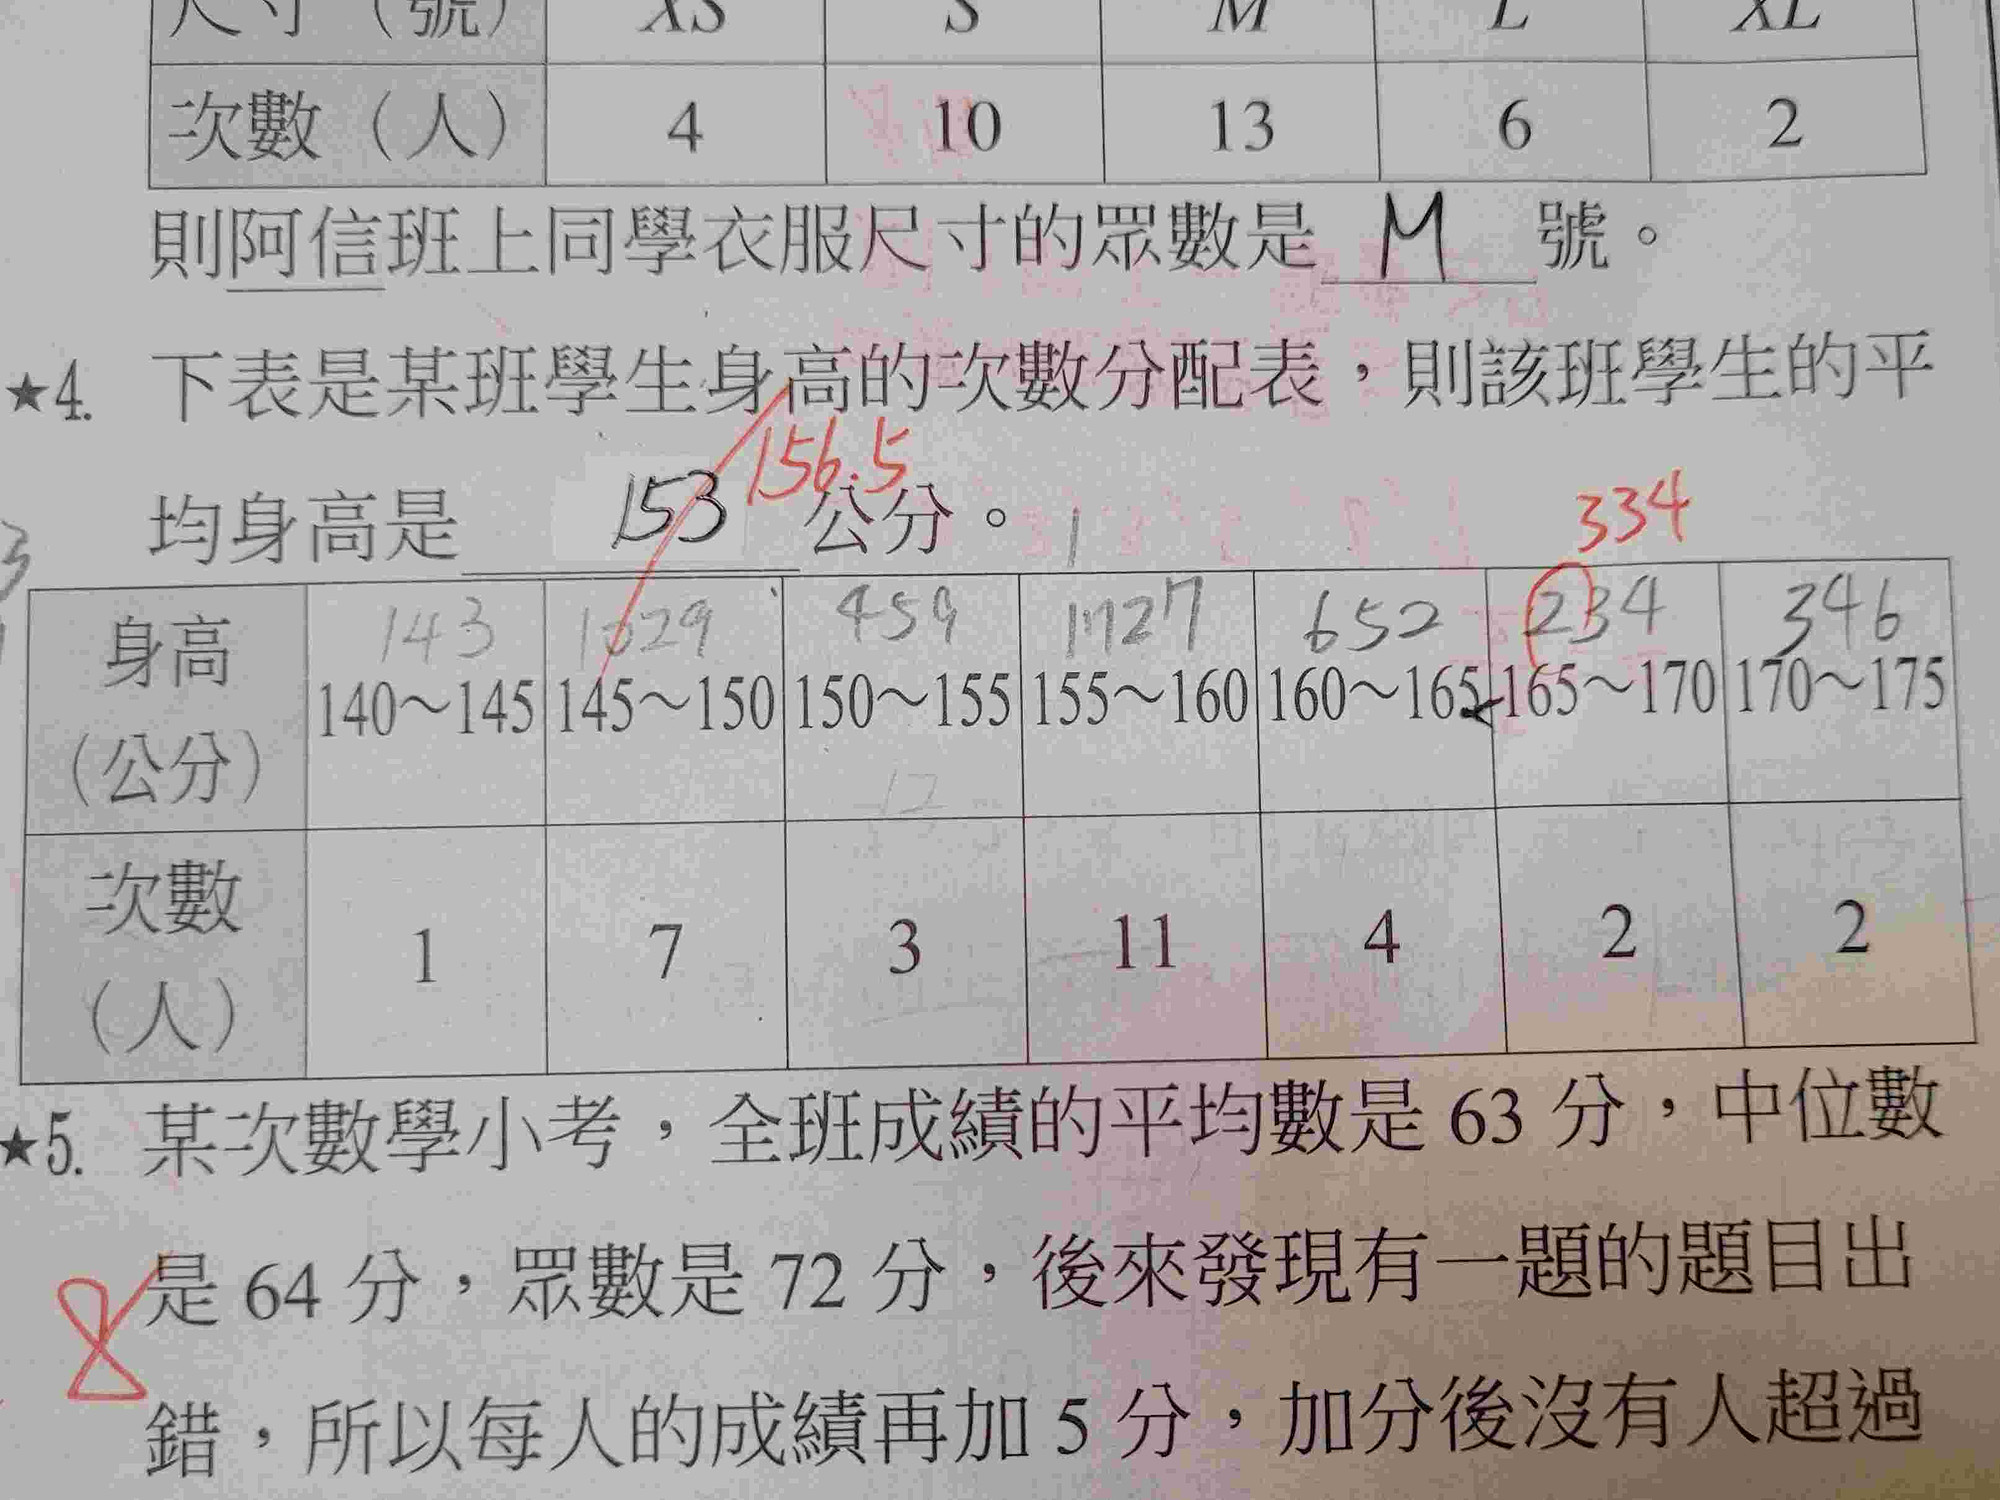 尺寸（號） XS S M L XL
次數（人） 4 10 13 6 2
則阿信班上同學衣服尺寸的眾數是 M 號。
★4. 下表是某班學生身高的次數分配表，則該班學生的平
156.5
均身高是 153 公分。
334
143 1029 459 1727 652 234 346
身高（公分） 140～145 145～150 150～155 155～160 160～165 165～170 170～175
次數（人） 1 7 3 11 4 2 2
★5. 某次數學小考，全班成績的平均數是 63 分，中位數
是 64 分，眾數是 72 分，後來發現有一題的題目出
錯，所以每人的成績再加 5 分，加分後沒有人超過